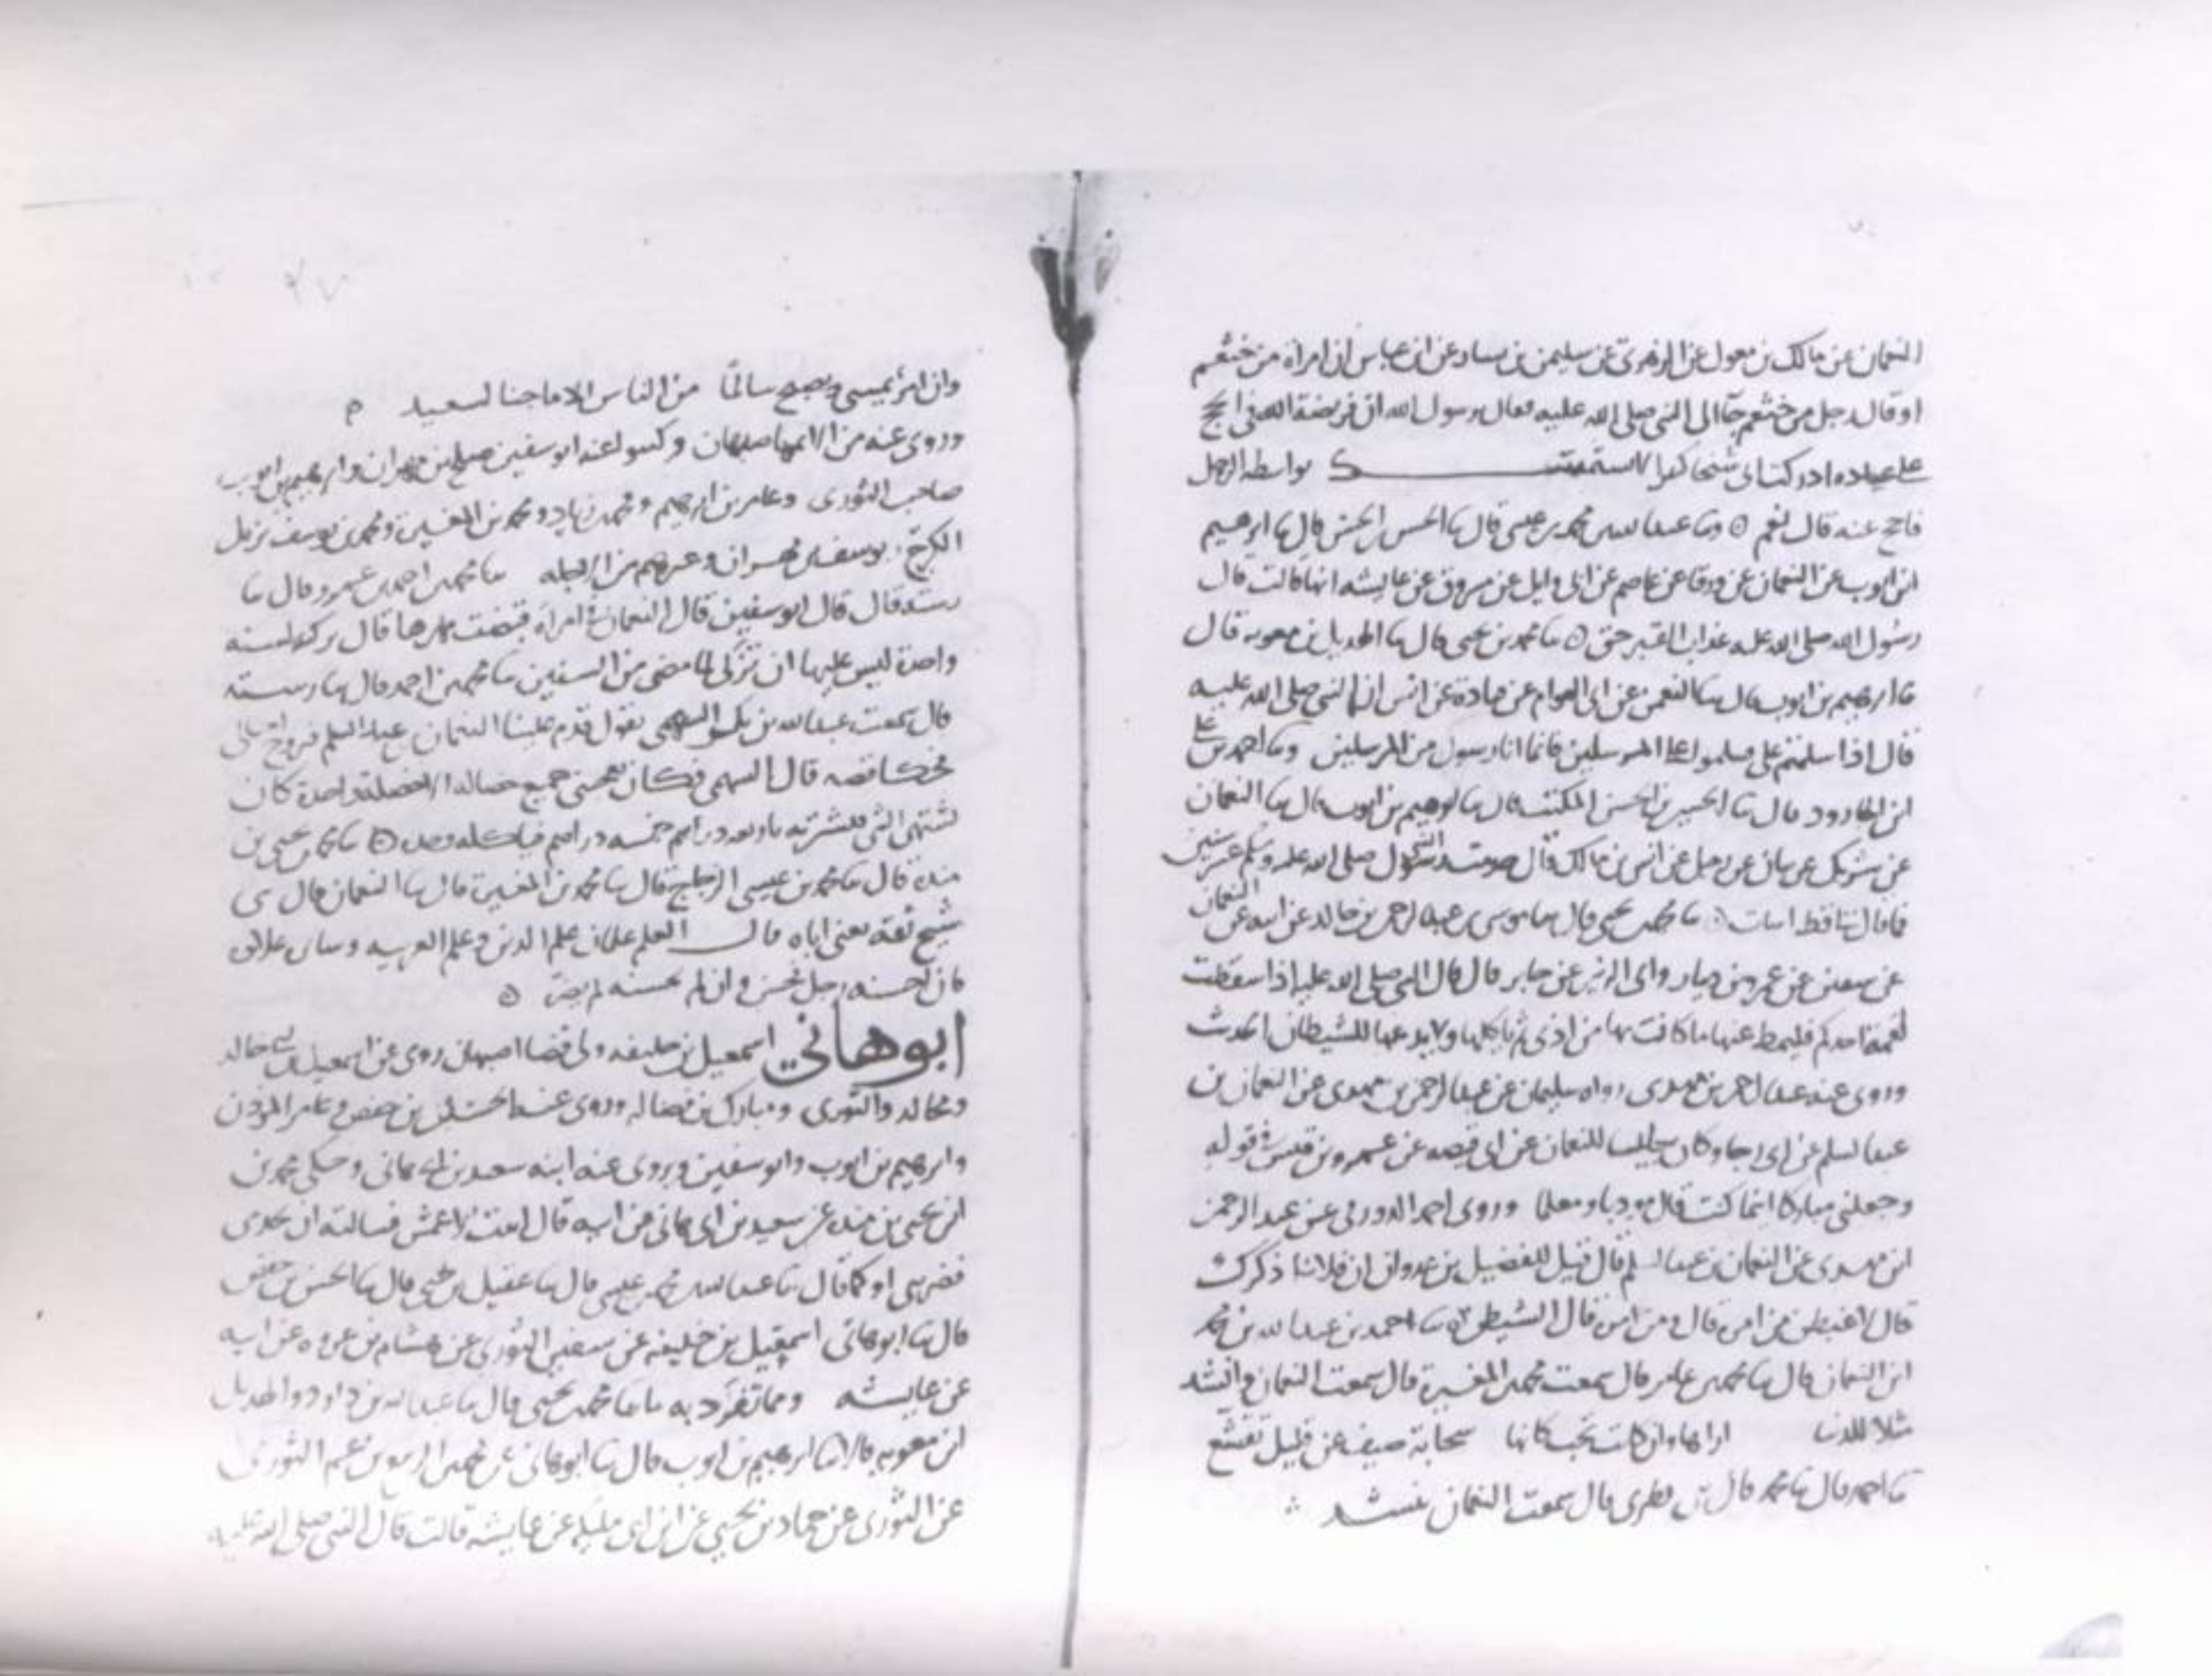 النعمان عن مالك بن مغول عن الزهري عن سليمن بن يسار عن ابن عباس ان امراة من خثعم
او قال رجل من خثعم جآ الى النبي صلى الله عليه فقال يرسول الله ان فريضة الله في الحج
على عباده ادركت ابي شيخا كبيرا لا يستمسك بواسطة الرحل
فاحج عنه قال نعم ه وثنا عبد الله بن محمد بن عيسى قال ثنا الحسن قال ثنا ابرهيم
ابن ايوب عن النعمان عن ورقا عن عاصم عن ابي وايل عن مسروق عن عايشه انها قالت قال
رسول الله صلى الله عليه عذاب القبر حق ه ثنا محمد بن يحيى قال ثنا الهذيل بن معويه قال
ثنا ابرهيم بن ايوب قال ثنا النعمن عن ابي العوام عن قتادة عن انس ان النبي صلى الله عليه
قال اذا سلمتم علي سلموا على المرسلين فانما انا رسول من المرسلين وثنا احمد بن علي
ابن الجارود قال ثنا الحسن قال ثنا ابرهيم بن ايوب قال ثنا النعمان
عن شريك عن بيان عن رجل عن انس بن مالك قال خدمت رسول صلى الله عليه وسلم عشر سنين
فما قال لنا قط اسات ه ثنا محمد بن يحيى قال ثنا موسى بن عبد الرحمن بن خالد عن ابيه عن النعمان
عن سفين عن عمرو بن دينار وابي الزبير عن جابر قال قال النبي صلى الله عليه اذا سقطت
لقمة احدكم فليمط عنها ما كانت بها من اذى ثم ياكلها ولا يدعها للشيطان الحديث
وروى عنه عبد الرحمن بن مهدي رواه سليمان عن عبد الرحمن بن مهدي عن النعمان بن
عبد السلم عن ابي رجا وكان جليسا للنعمان عن عمرو بن قيس في قوله
وجعلني مباركا اينما كنت قال مودبا ومعلما وروى احمد الدورقي عن عبد الرحمن
ابن مهدي عن النعمان بن عبد السلم قال قيل للفضيل بن غزوان ان فلانا ذكرك
قال لاغيظن من امره قال ومن امره قال الشيطن ه ثنا احمد بن عبد الله بن محمد
ابن النعمان قال ثنا محمد بن عامر قال سمعت محمد بن المغيرة قال سمعت النعمان وانشد
مثلا للدنيا اراها وان كانت تحب كانها سحابة صيف عن قليل تقشع
ثنا احمد قال ثنا محمد قال سمعت النعمان ينشد
وان امرؤ يمسي ويصبح سالمًا من الناس الا ما جنا لسعيد
وروى عنه من اهل اصبهان وكتبوا عنه ابو سفين صلح بن مهران وابرهيم بن ايوب
صاحب الثوري وعامر بن ابرهيم ومحمد بن زياد ومحمد بن المغيرة ومحمد بن يوسف نزيل
الكرج ويوسف بن مهران وغيرهم من الرحله ثنا محمد بن احمد بن عمرو قال ثنا
رسته قال قال ابو سفين قال النعمان في امراة قبضت مهرها قال زكوة سنه
واحدة ليس عليها ان تزكي لما مضى من السنين ثنا محمد بن احمد قال ثنا رسته
قال سمعت عبد الله بن بكر السهمي يقول قدم علينا النعمان بن عبد السلم
فحكا قصه قال السهمي فكان تعجبني جميع خصاله الا خصلة واحدة كان
يشتهي الشي فيشتريه باربعه دراهم خمسه دراهم فياكله وحده ه ثنا محمد بن يحيى بن
منده قال ثنا محمد بن عيسى الزجاج قال ثنا محمد بن المغيرة قال ثنا النعمان قال ثني
شيخ ثقه يعني اباه قال العلم علمان علم الدين وعلم العربيه
فان احسنه رجل فحسن وان لم يحسنه لم يضره ه
ابو هاني اسمعيل بن خليفه ولي قضا اصبهان روى عن اسمعيل بن ابي خالد
ومجالد والثوري ومبارك بن فضاله وروى عنه الحسين بن حفص وعامر المؤذن
وابرهيم بن ايوب وابو سفين ويروي عنه ابنه سعيد بن ابي هاني وحكى محمد بن
ابن يحيى بن منده عن سعيد بن ابي هاني عن ابيه قال اتيت الاعمش فسالته ان يحدثني
فضربني او كما قال ثنا عبد الله بن محمد بن عيسى قال ثنا عقيل بن يحيى قال ثنا الحسين بن حفص
قال ثنا ابو هاني اسمعيل بن خليفه عن سفين الثوري عن هشام بن عروه عن ابيه
عن عايشه ومما تفرد به ما ثنا محمد بن يحيى قال ثنا عبد الله بن داود والهذيل
ابن معويه قالا ثنا ابرهيم بن ايوب قال ثنا ابو هاني عن الثوري
عن الثوري عن حماد بن يحيى عن ابن ابي مليكه عن عايشه قالت قال النبي صلى الله عليه